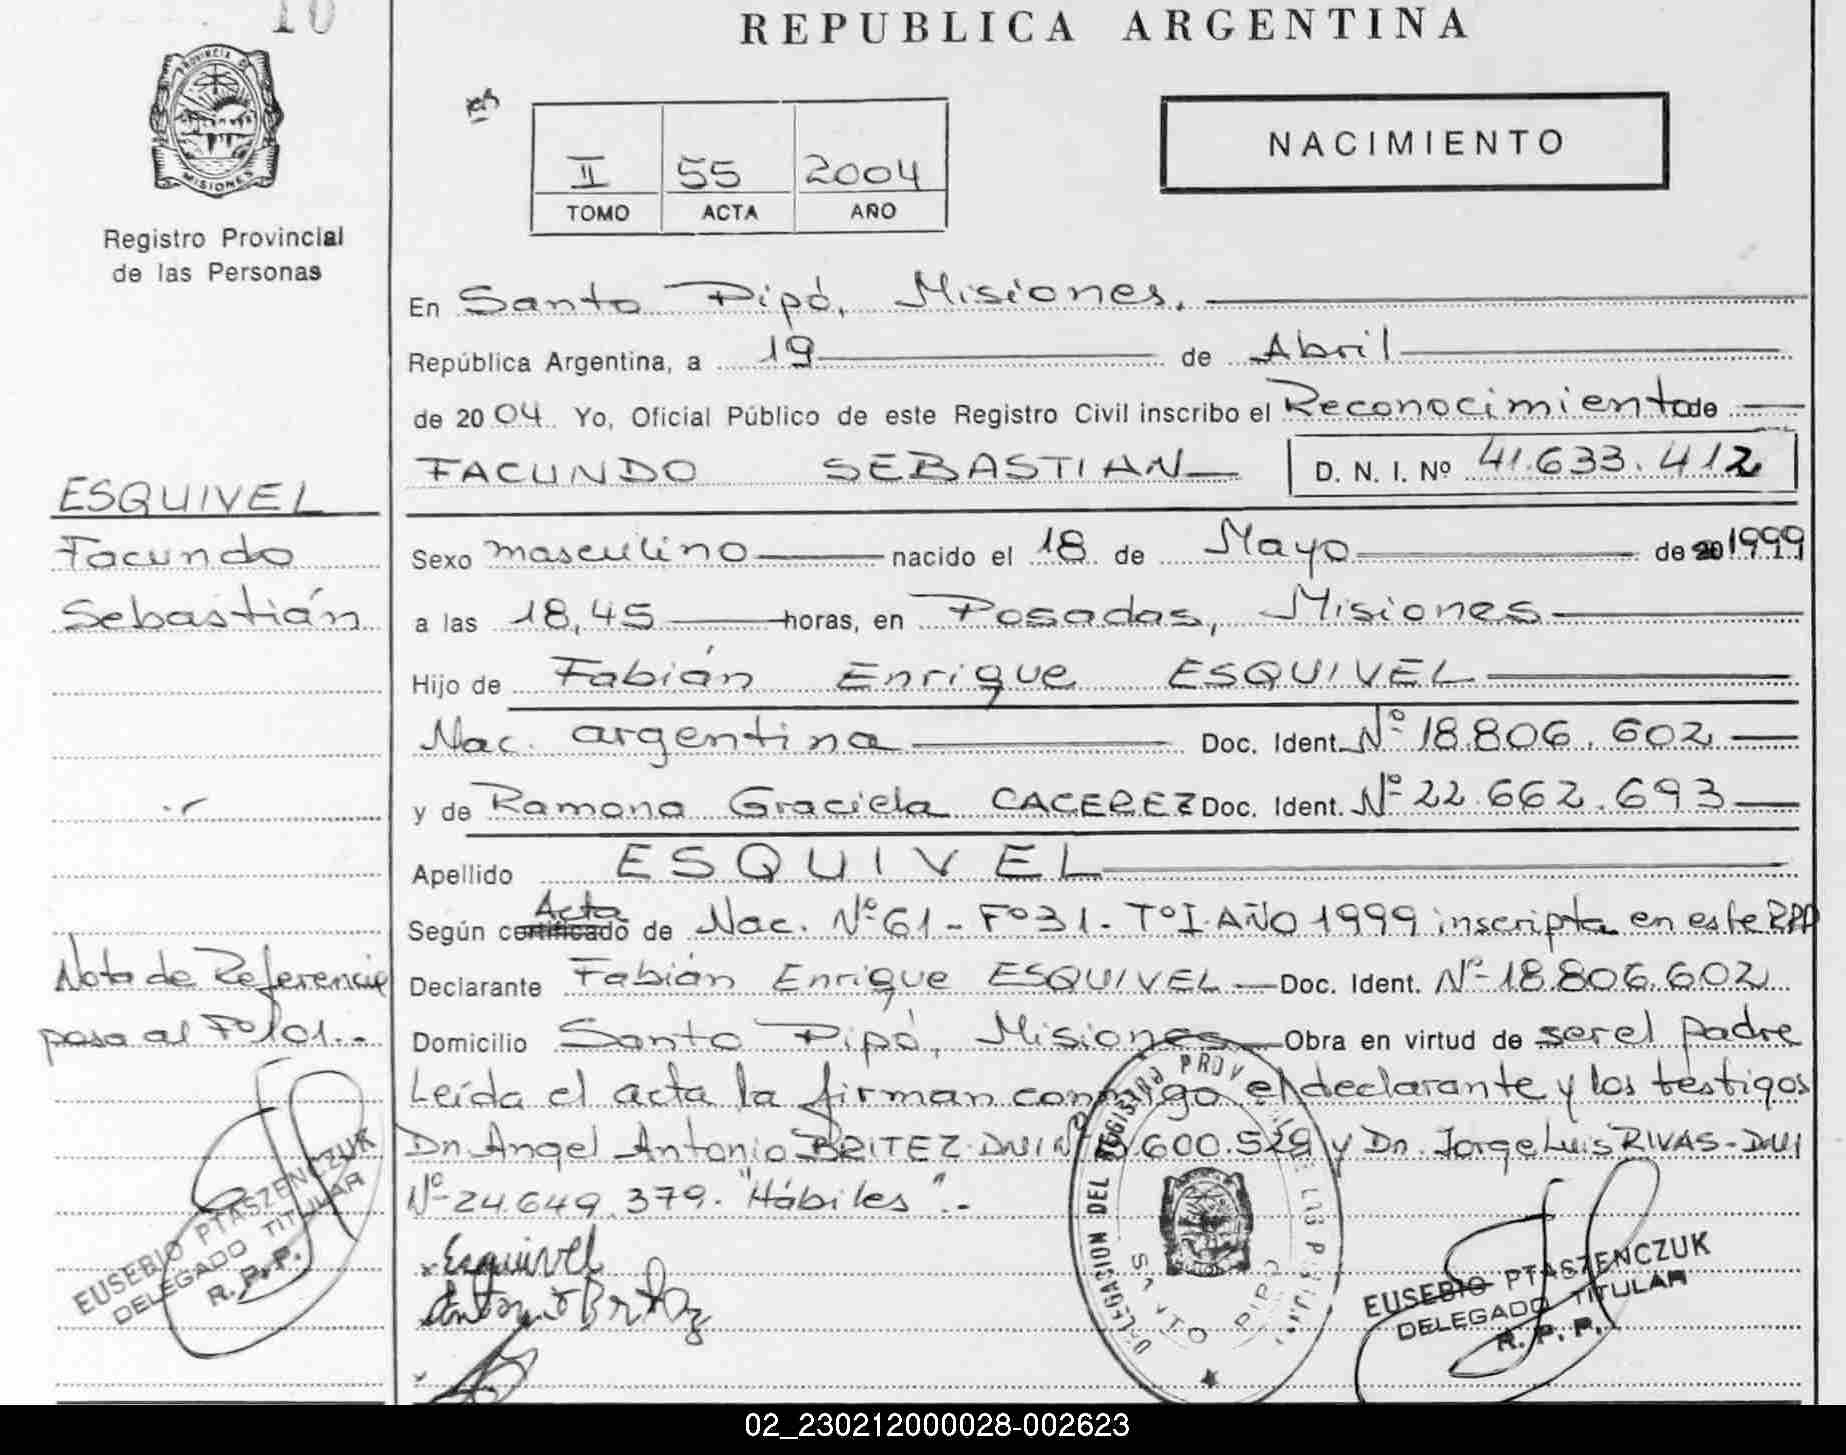 10
REPUBLICA ARGENTINA
PROVINCIA DE
MISIONES
Registro Provincial
de las Personas
II 55 2004
TOMO ACTA AÑO
NACIMIENTO
En Santo Pipó, Misiones.
República Argentina, a 19 de Abril
de 2004. Yo, Oficial Público de este Registro Civil inscribo el Reconocimiento de
FACUNDO SEBASTIAN D. N. I. Nº 41.633.412
ESQUIVEL
Facundo
Sebastián
Sexo masculino nacido el 18 de Mayo de 20 1999
a las 18,45 horas, en Posadas, Misiones
Hijo de Fabián Enrique ESQUIVEL
Nac. argentina Doc. Ident. Nº 18.806.602
y de Ramona Graciela CACEREZ Doc. Ident. Nº 22.662.693
Apellido ESQUIVEL
Acta
Según certificado de Nac. Nº 61 - Fº 31 - Tº I - AÑO 1999 inscripta en este RPP
Declarante Fabián Enrique ESQUIVEL Doc. Ident. Nº 18.806.602
Domicilio Santo Pipó, Misiones Obra en virtud de ser el padre
Leída el acta la firman conmigo el declarante y los testigos
Dn. Angel Antonio BRITEZ - DNI Nº .600.529 y Dn. Jorge Luis RIVAS - DNI
Nº 24.649.379. "Hábiles".-
Nota de Referencia
pasa al Fº 101.-
EUSEBIO PTASZENCZUK
DELEGADO TITULAR
R. P. P.
Esquivel
Antonio Britez
DELEGACION DEL REGISTRO PROV DE LAS
SANTO PIPO
EUSEBIO PTASZENCZUK
DELEGADO TITULAR
R. P. P.
02_230212000028-002623